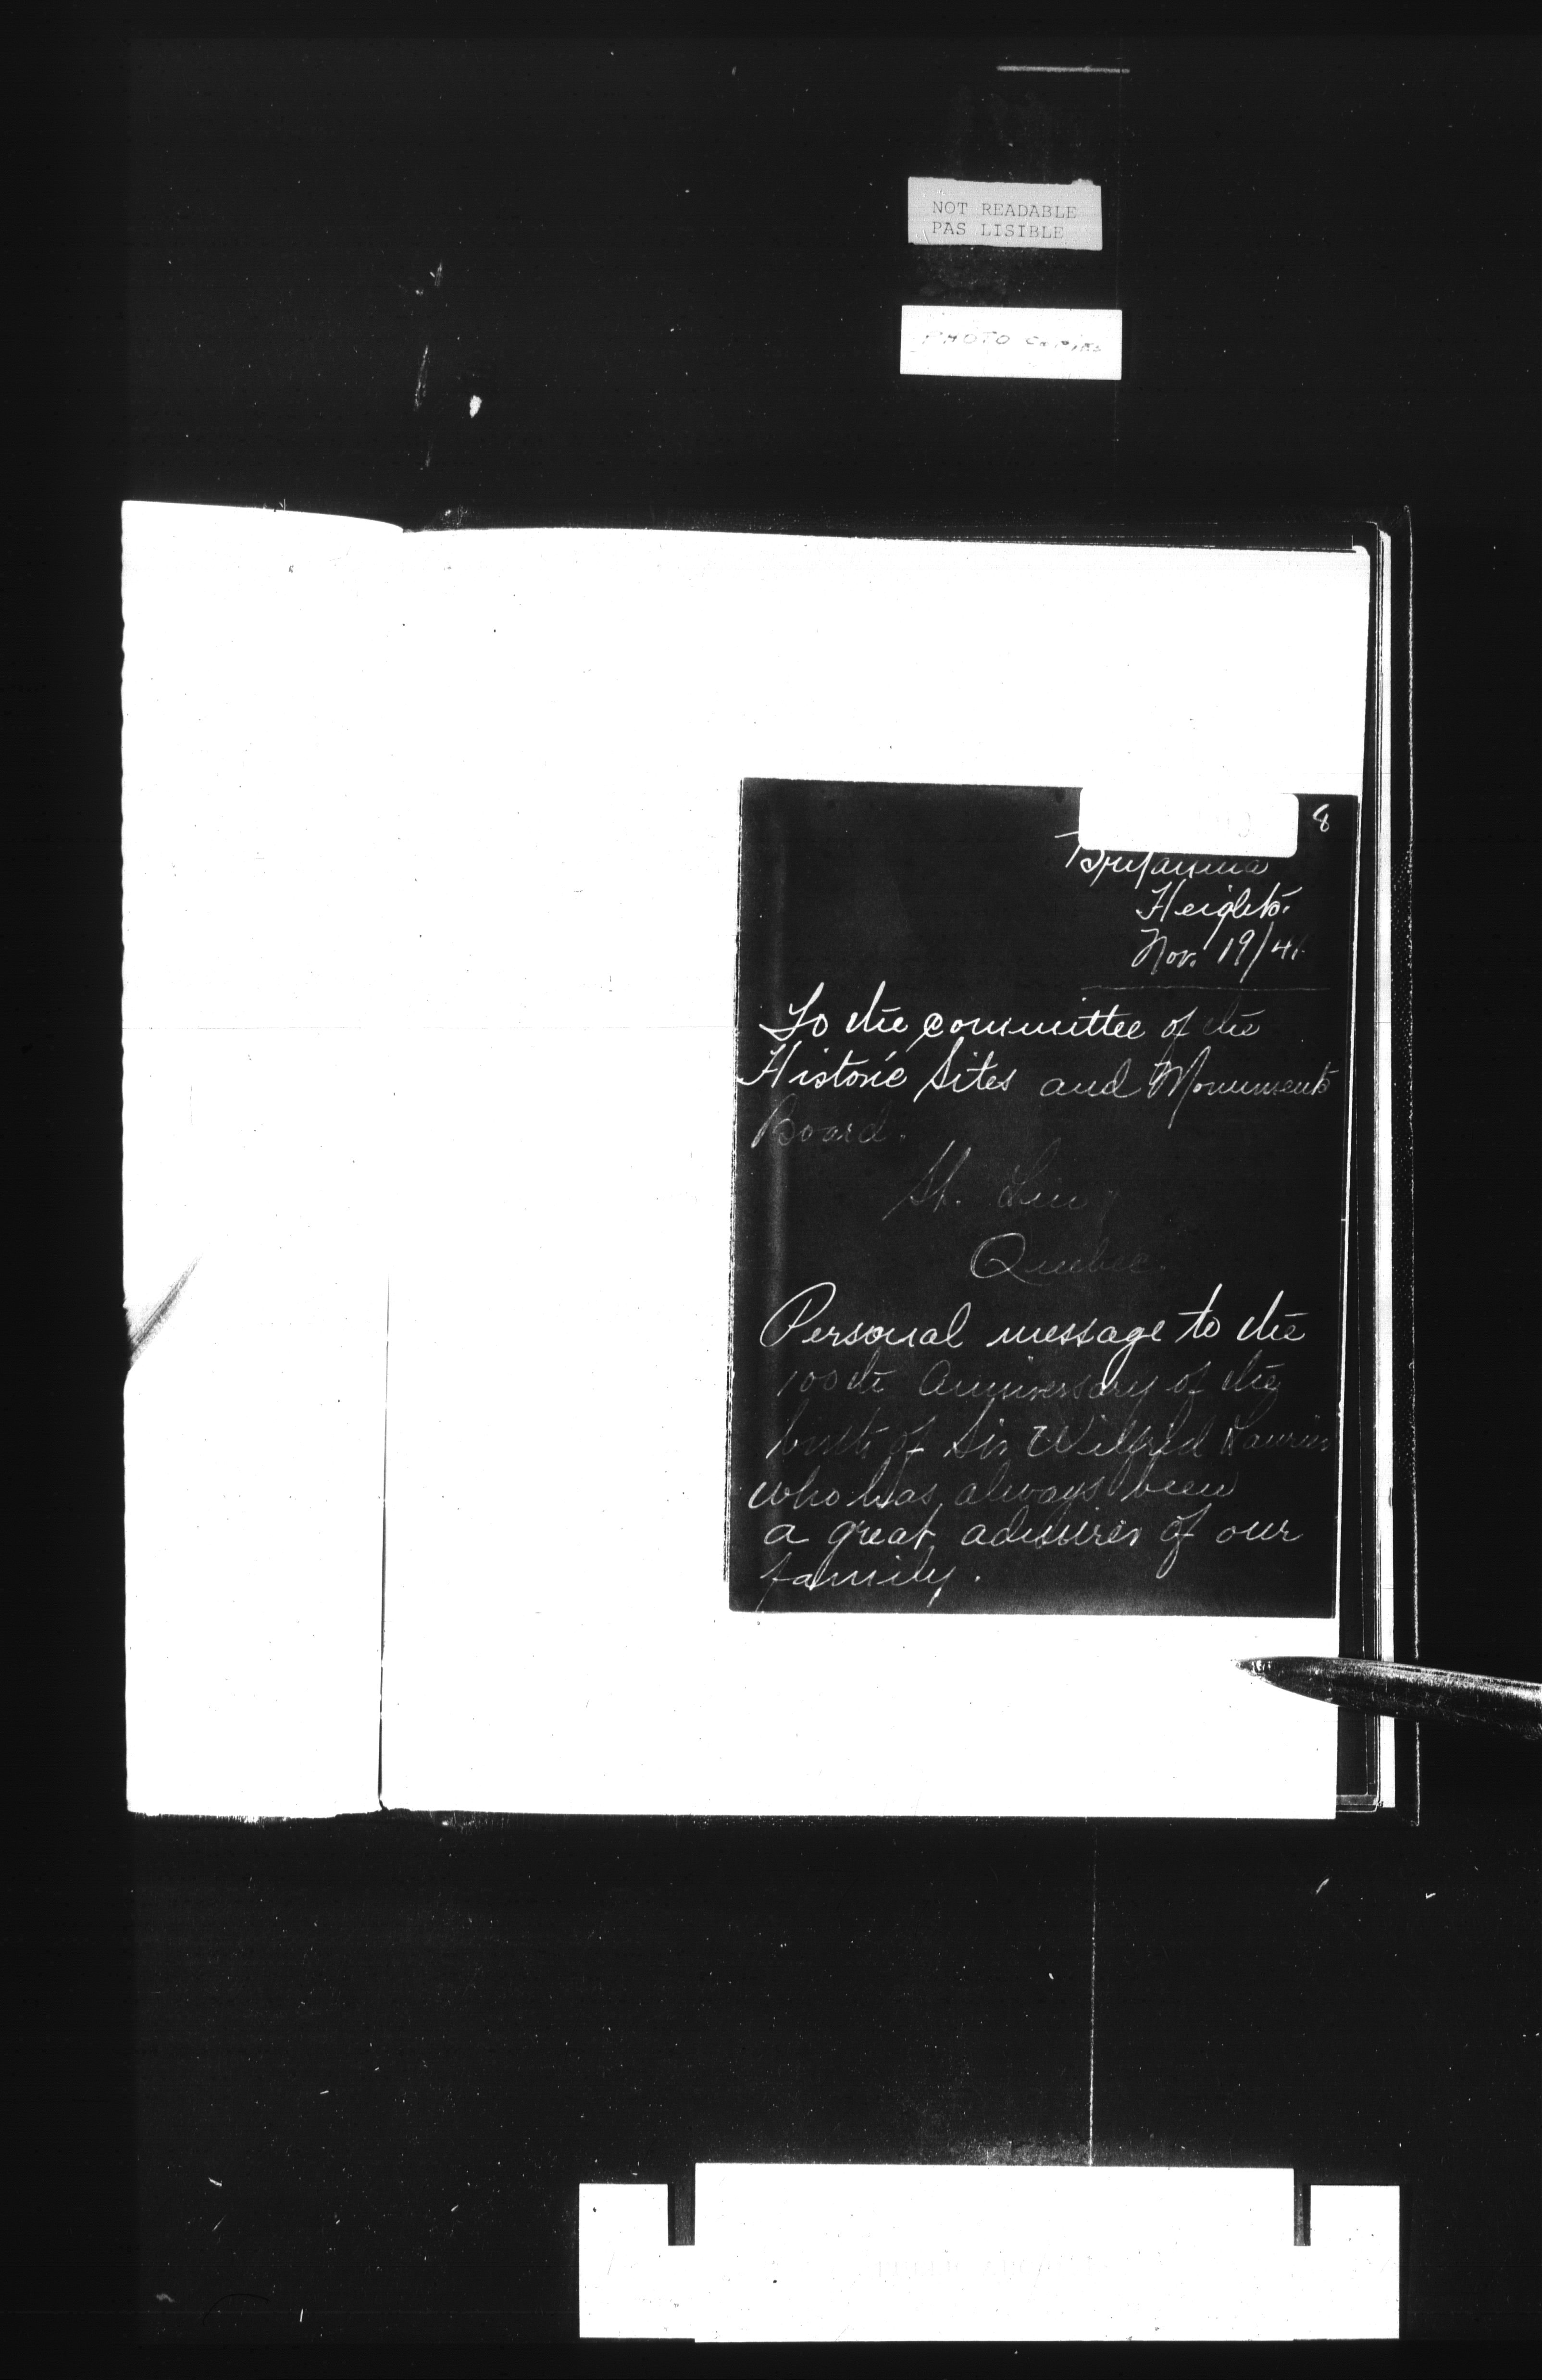 NOT READABLE
PAS LISIBLE
PHOTO COPIES
8
Britannia
Heights.
Nov. 19/41
To the committee of the
Historic Sites and Monuments
Board.
St. Lin
Quebec.
Personal message to the
100th Anniversary of the
birth of Sir Wilfrid Laurier
who has always been
a great admirer of our
family.